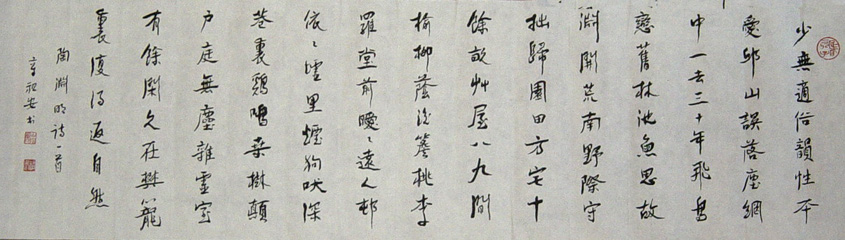 少無適俗韻性本
愛邱山誤落塵網
中一去三十年飛鳥
戀舊林池魚思故
淵開荒南野際守
拙歸園田方宅十
餘畝艸屋八九間
榆柳蔭後簷桃李
羅堂前曖〻遠人邨
依〻墟里煙狗吠深
巷裏鷄鳴桑樹顛
戶庭無塵雜虛室
有餘閑久在樊籠
裏復得返自然
陶淵明詩一首